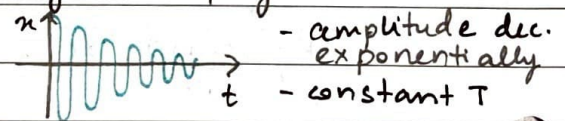 x
t
- amplitude dec.
exponentially
- constant T